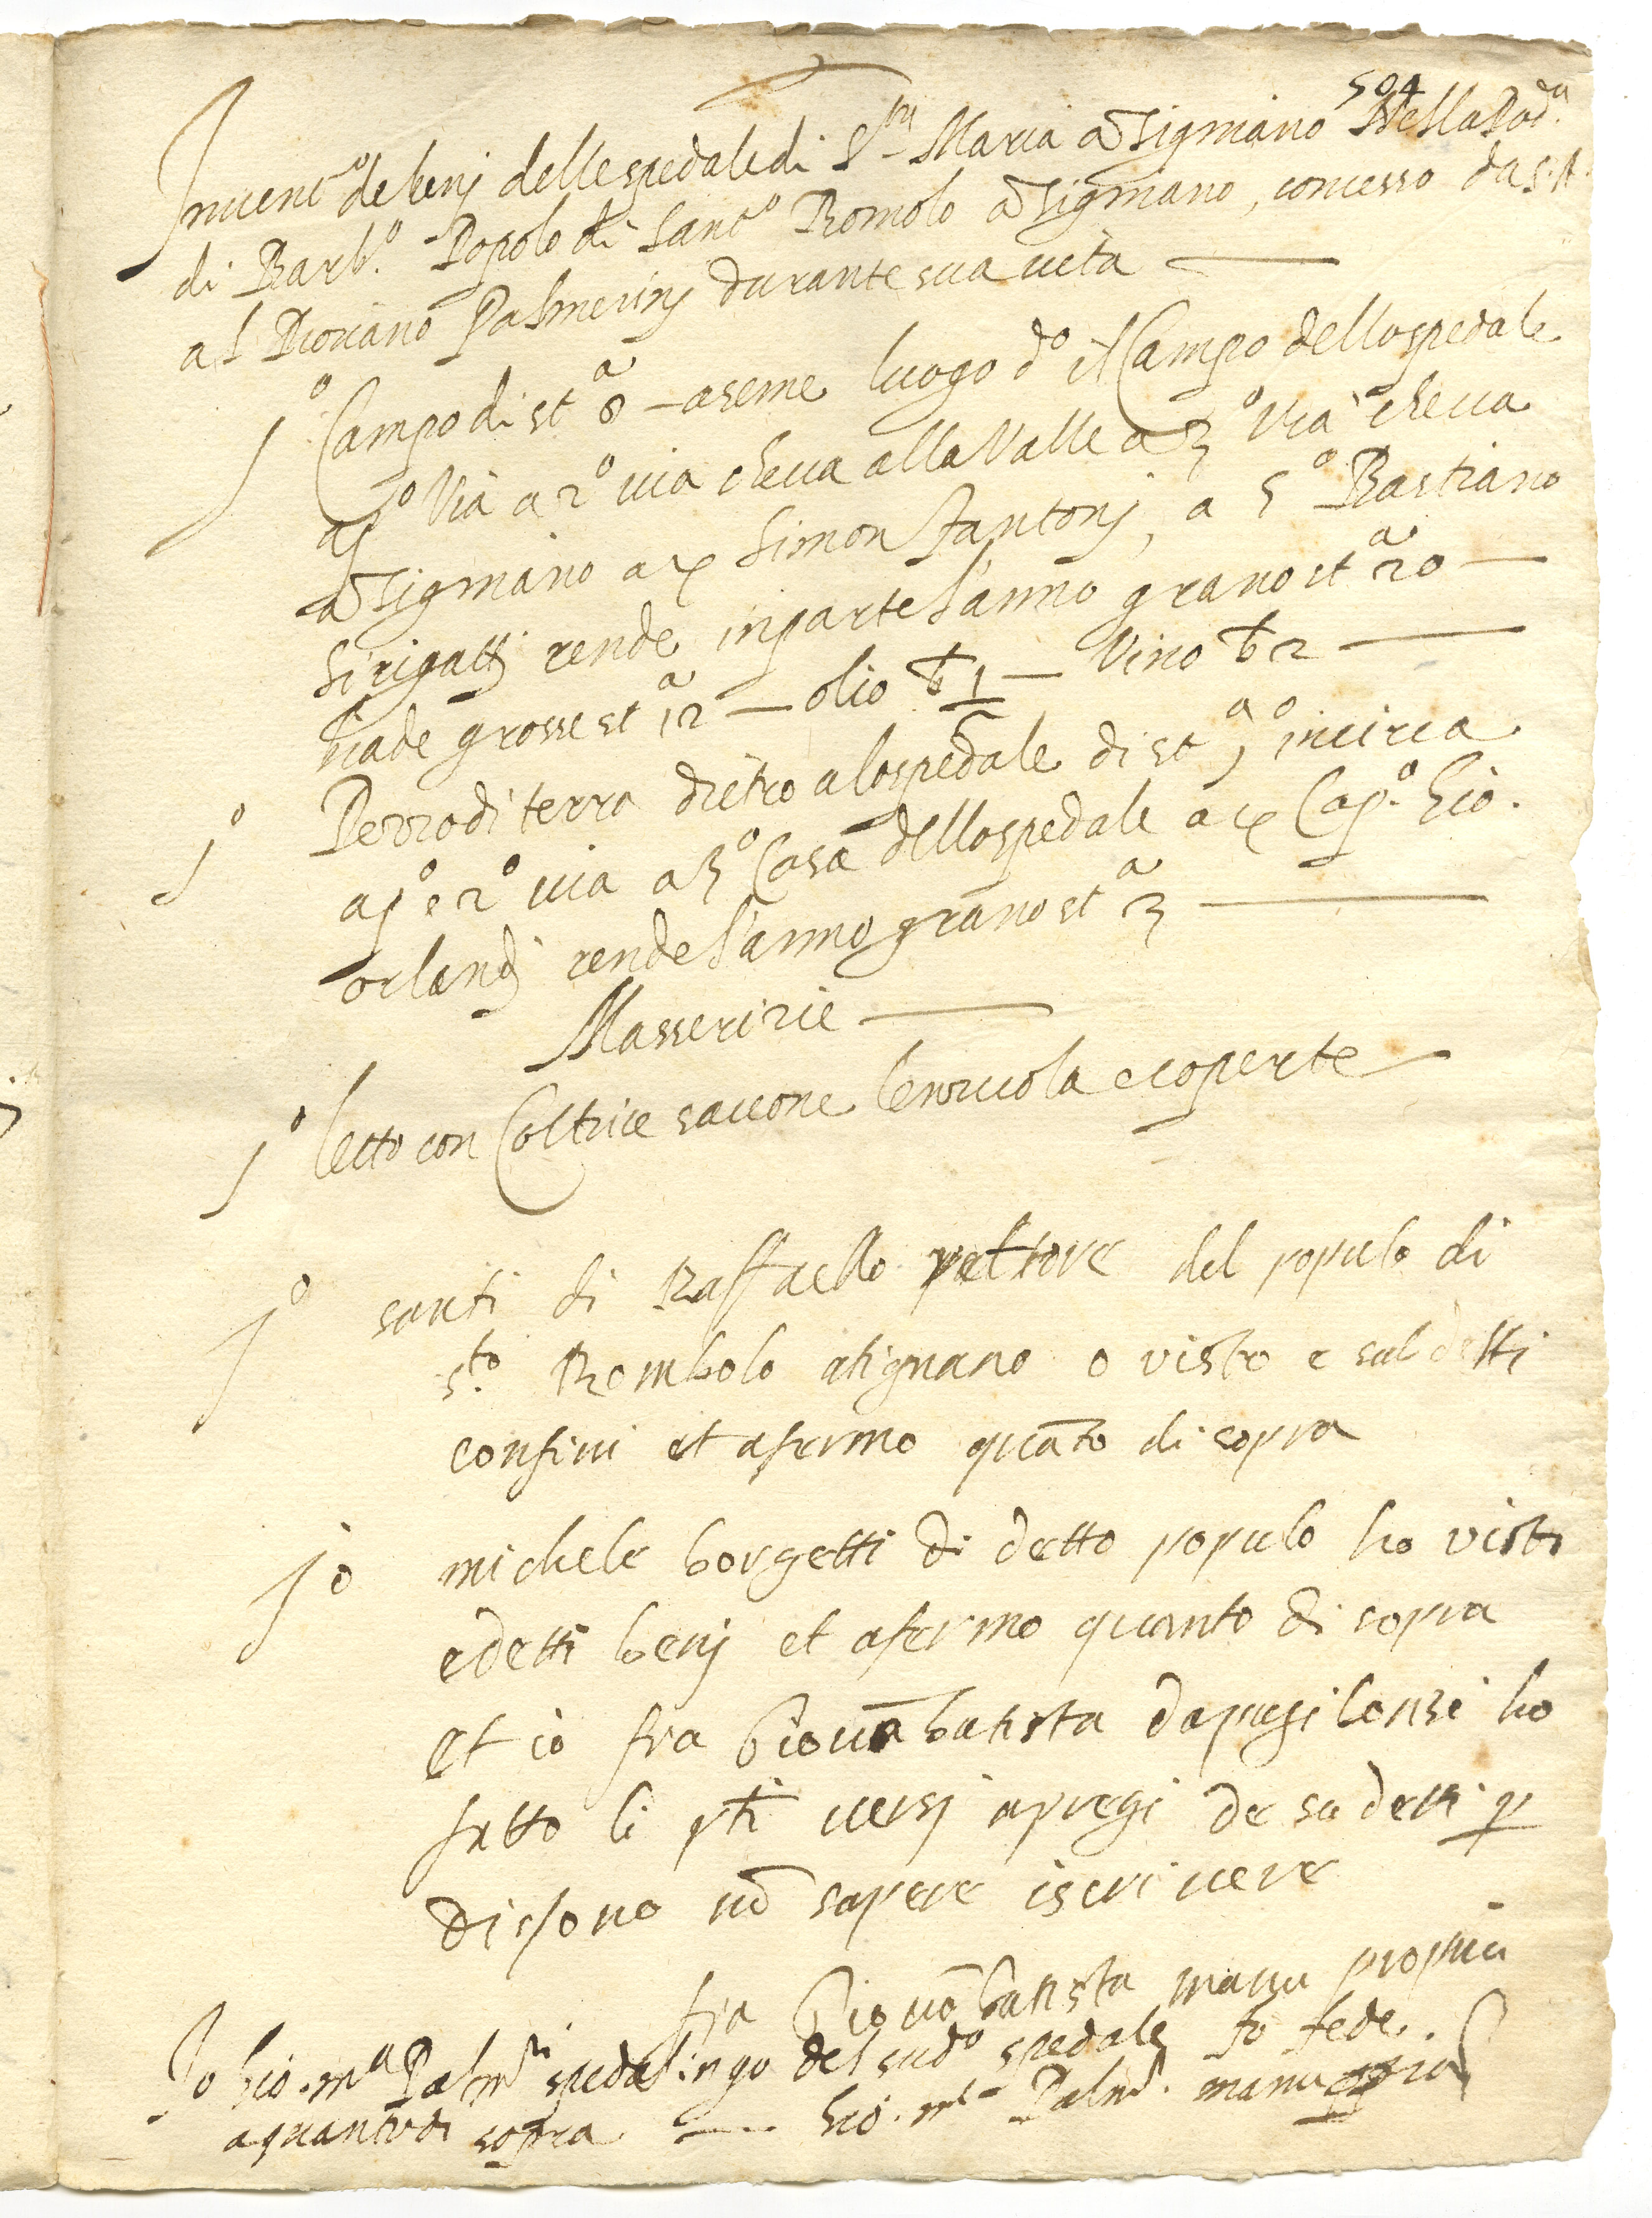 504
Invent.º de benj dello spedale di S.ta Maria a Tignano Nella Pod.a
di Barb.º Popolo di Santº Romolo a Tignano, concesso da S. A.
al Piovano Palmerinj durante sua vita
1º Campo di stª 8 — a seme luogo dº il Campo dello spedale
a pº Via a 2º via che va alla Valle a 3º Via che va
a Tignano a 4 Simon Fantonj, a 5º Bastiano
Sirigattj rende in parte l'anno grano stª 20 —
biade grosse stª 12 — olio b 1 — Vino b 2 —
1º Pezzo di terra dietro a lo spedale di stª 1º incirca
a pº e 2º via a 3º Casa dello spedale a 4 Cap.º Gio.
orlandj rende l'anno grano stª 3 —
Masserizie —
1º letto con Coltrice saccone lenzuola e coperte
Jº santi di Raffaello pettore del populo di
s.to Rombolo atignano o visto e sul detti
confini et afermo quāto di sopra
Jo michele borgetti di detto populo ho visto
e detti benj et afermo quanto di sopra
et io fra Giovābatista da pugi lonzi ho
fatto li pīti versj a pregi de su detti p
dissono nō sapere iscrivere
fra Giovābatista manu propria
Jo Gio. mª Palmni spedalingo del sudº spedale fo fede
a quanto di sopra — Gio. mª Palmi. manu ppria